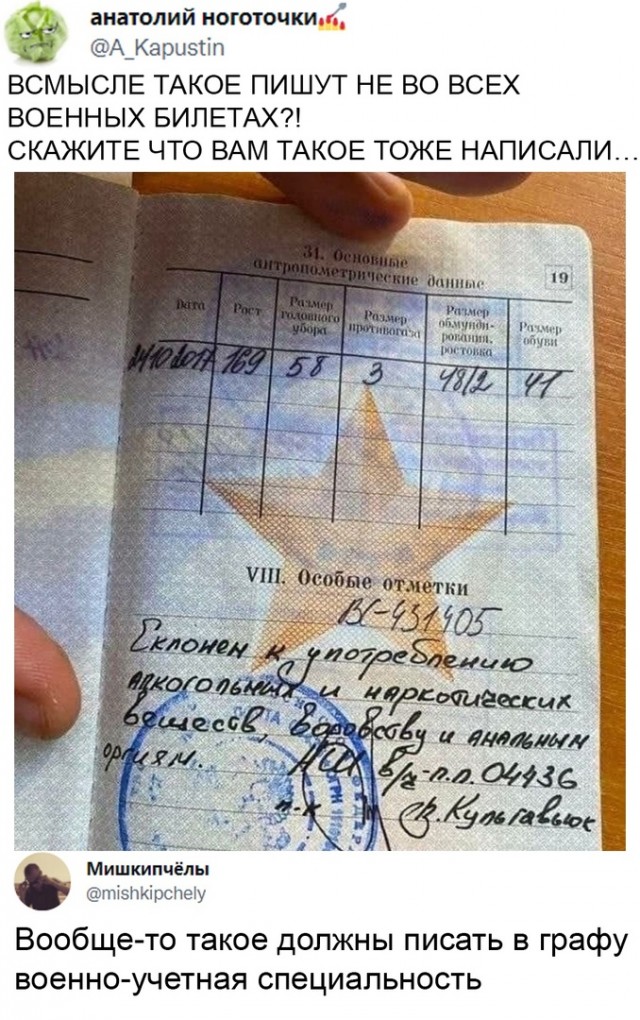 анатолий ноготочки
@A_Kapustin
ВСМЫСЛЕ ТАКОЕ ПИШУТ НЕ ВО ВСЕХ
ВОЕННЫХ БИЛЕТАХ?!
СКАЖИТЕ ЧТО ВАМ ТАКОЕ ТОЖЕ НАПИСАЛИ…
31. Основные
антропометрические данные
19
Дата Рост Размер головного убора Размер противогаза Размер обмунди- рования, ростовка Размер обуви
24.10.2017 169 58 3 48/2 41
VIII. Особые отметки
ВС-431405
Склонен к употреблению
алкогольных и наркотических
веществ, воровству и анальным
оргиям. НШ в/ч-п.п. 04436
п-к В. Кульгавьюк
Мишкипчёлы
@mishkipchely
Вообще-то такое должны писать в графу
военно-учетная специальность